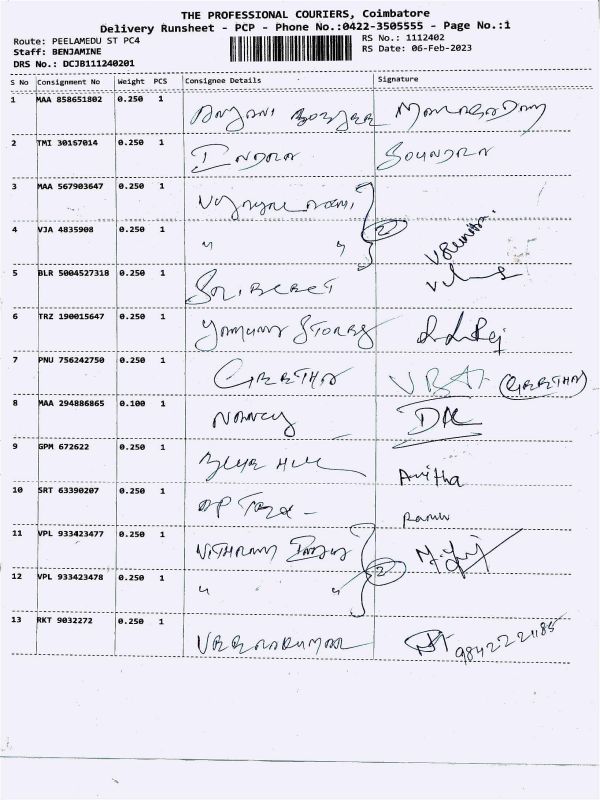 THE PROFESSIONAL COURIERS, Coimbatore
Delivery Runsheet - PCP - Phone No.:0422-3505555 - Page No.:1
Route: PEELAMEDU ST PC4 RS No.: 1112402
Staff: BENJAMINE RS Date: 06-Feb-2023
DRS No.: DCJB111240201
S No Consignment No Weight PCS Consignee Details Signature
1 MAA 858651802 0.250 1
2 TMI 30157014 0.250 1 INDRA SOUNDRA
3 MAA 567903647 0.250 1
4 VJA 4835908 0.250 1 " " 2
5 BLR 5004527318 0.250 1
6 TRZ 190015647 0.250 1 YAMUNA STORES
7 PNU 756242750 0.250 1 GEETHA (GEETHA)
8 MAA 294886865 0.100 1 NANCY
9 GPM 672622 0.250 1 Anitha
10 SRT 63390207 0.250 1 Ramu
11 VPL 933423477 0.250 1
12 VPL 933423478 0.250 1 " " 2
13 RKT 9032272 0.250 1 VEERAKUMAR 9842221185